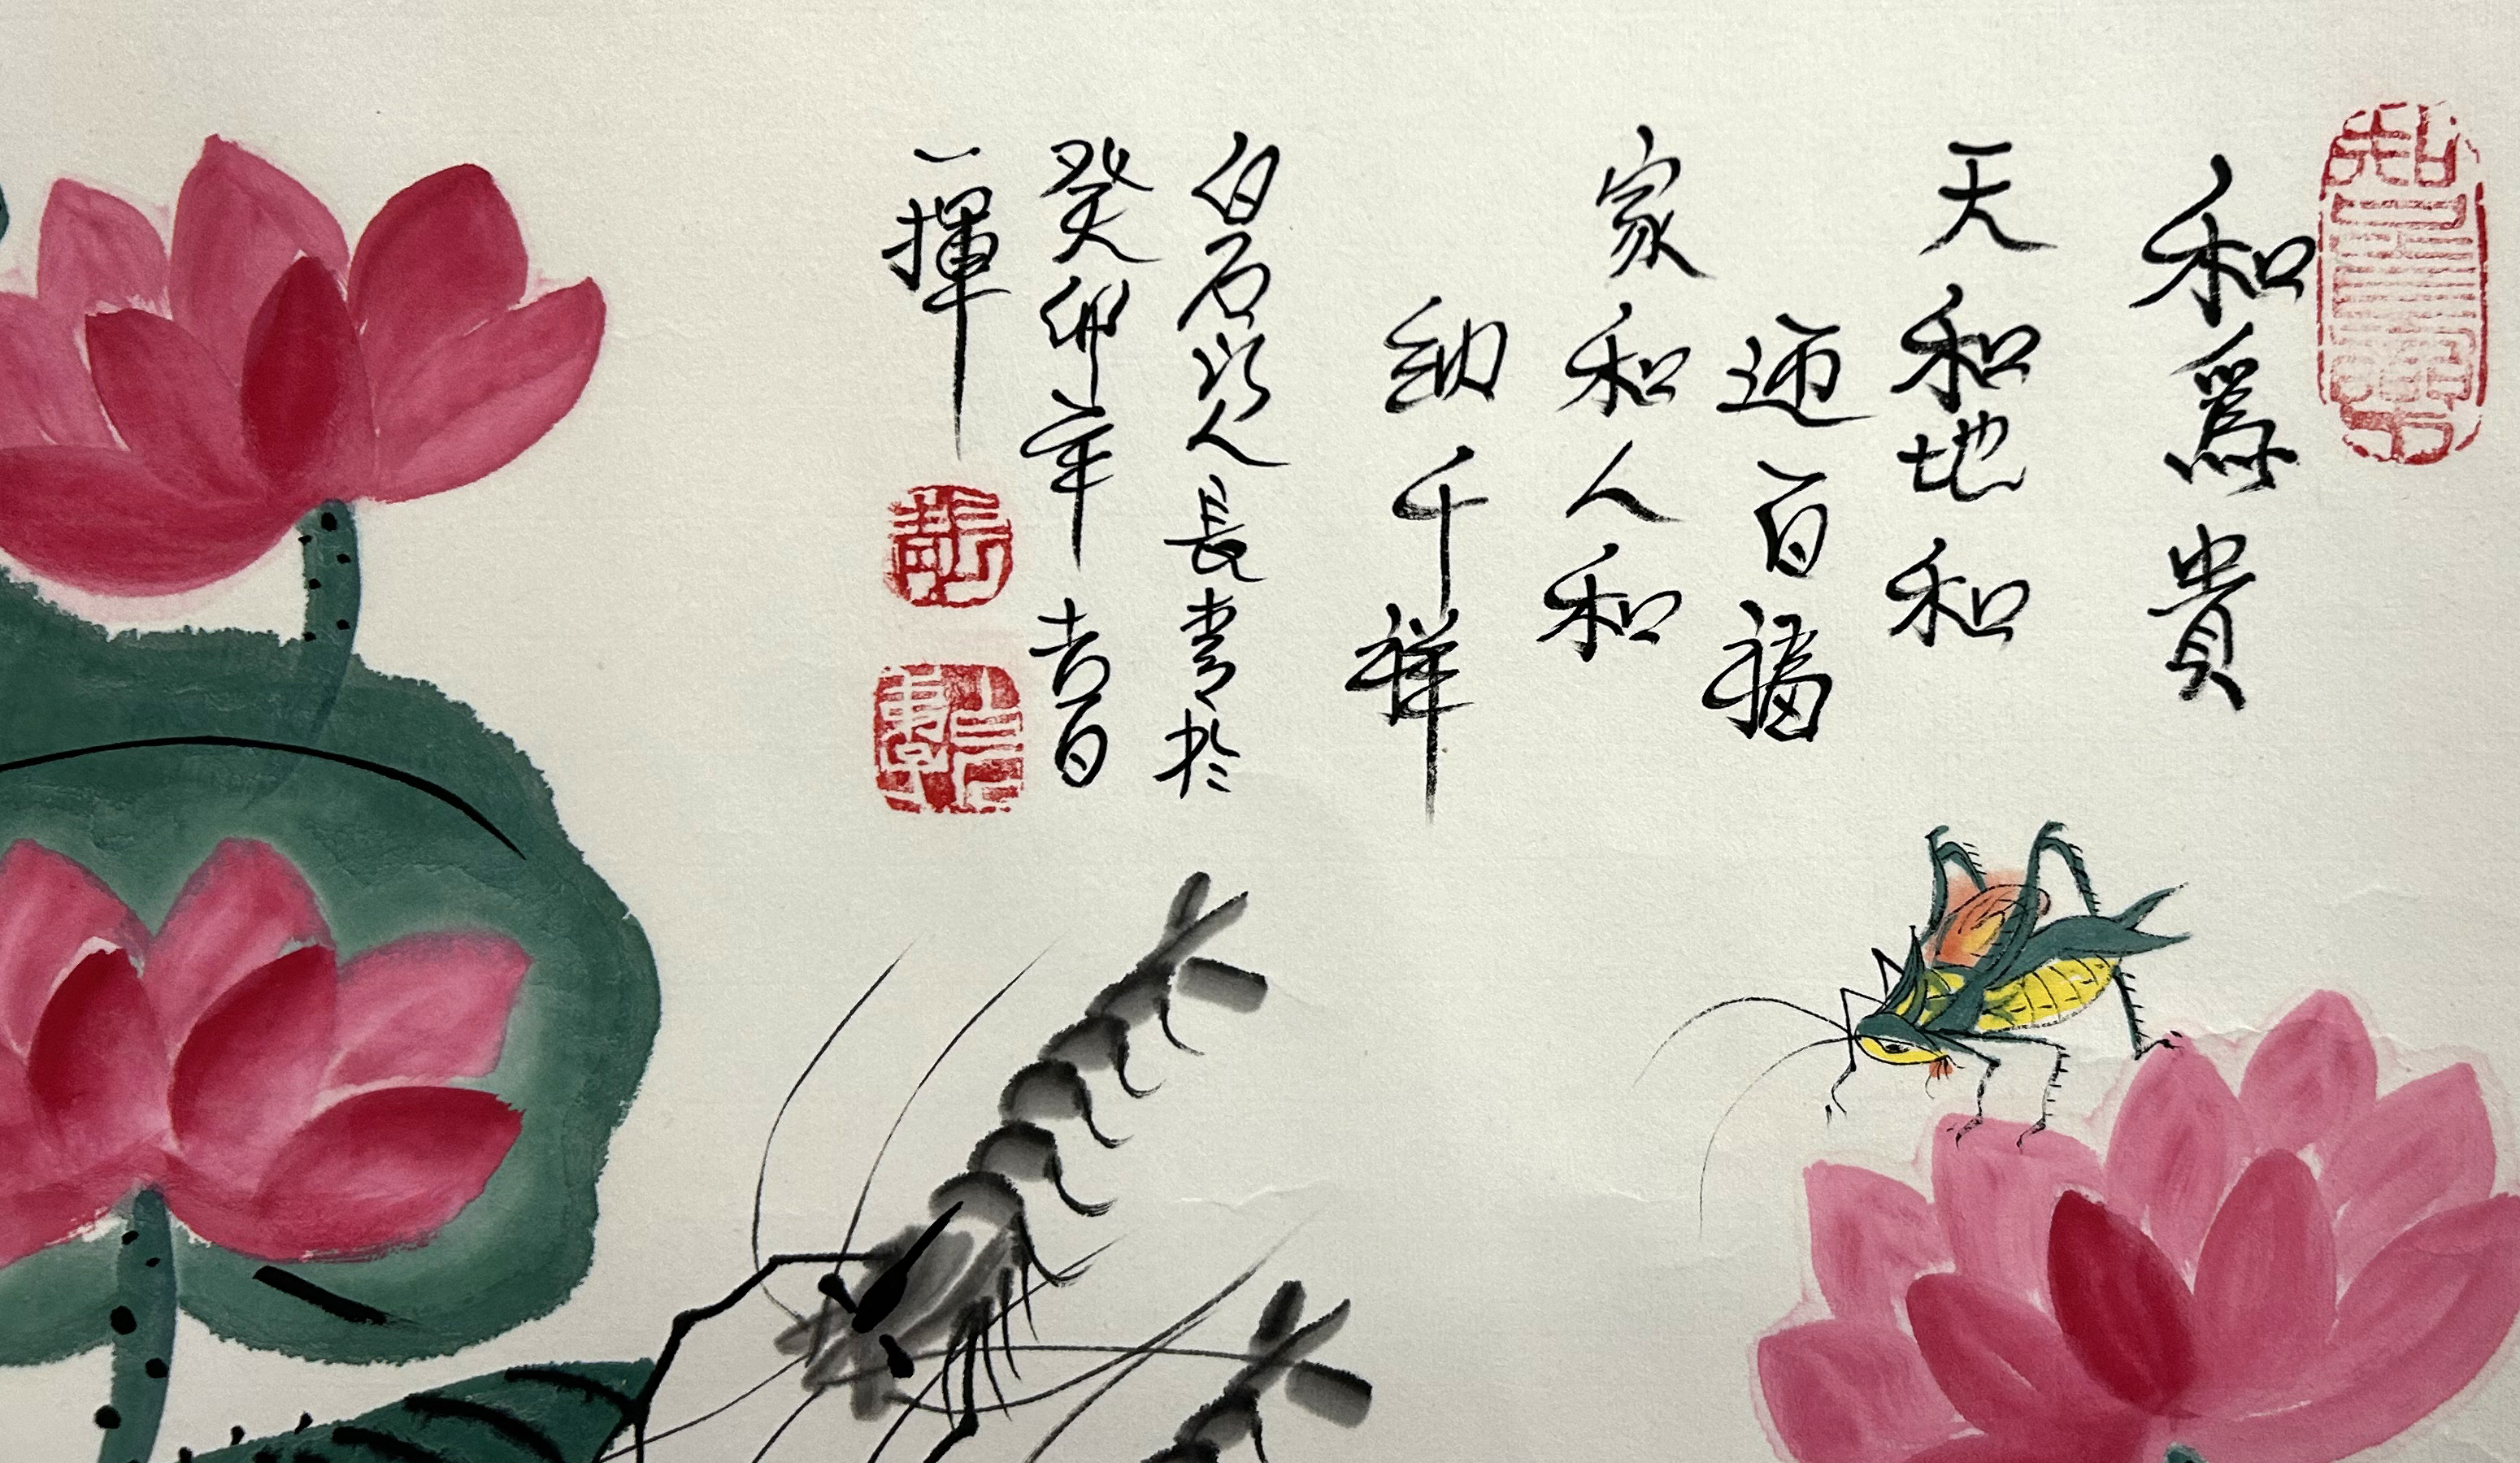 和為貴
天和地和
迊百福
家和人和
納千祥
白石後人長青於
癸卯年吉日
一揮